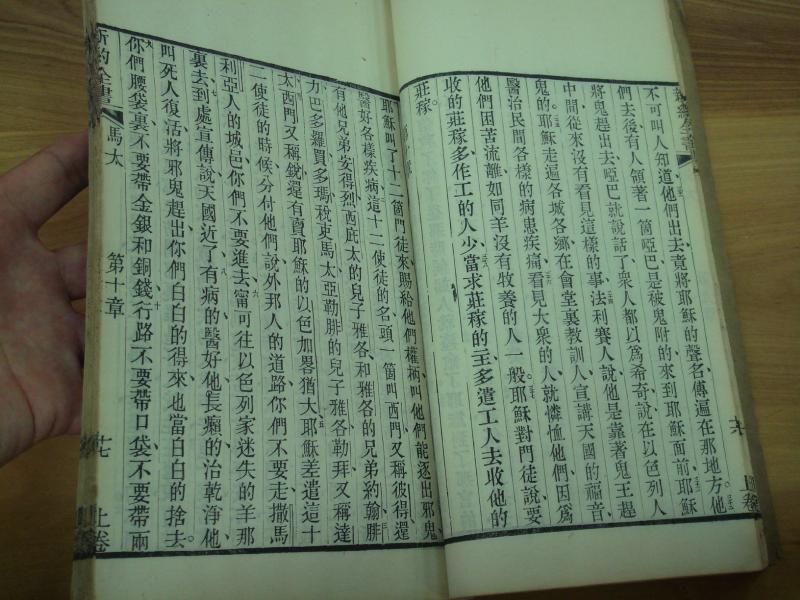 不可叫人知道他們出去竟將耶穌的聲名傳遍在那地方他
們去後有人領著一箇啞巴是被鬼附的來到耶穌面前耶穌
將鬼趕出去啞巴就說話了衆人都以爲希奇說在以色列人
中間從來沒有看見這樣的事法利賽人說他是靠著鬼王趕
鬼的耶穌走遍各城各鄉在會堂裏教訓人宣講天國的福音
醫治民間各樣的病患疾痛看見大衆的人就憐恤他們因爲
他們困苦流離如同羊沒有牧養的人一般。耶穌對門徒說要
收的莊稼多作工的人少當求莊稼的主多遣工人去收他的
莊稼。
耶穌叫了十二箇門徒來賜給他們權柄叫他們能逐出邪鬼
醫好各樣疾病這十二使徒的名頭一箇叫西門又稱彼得還
有他兄弟安得烈西庇太的兒子雅各和雅各的兄弟約翰腓
力巴多羅買多瑪稅吏馬太亞勒腓的兒子雅各勒拜又稱達
太西門又稱銳還有賣耶穌的以色加畧猶大耶穌差遣這十
二使徒的時候分付他們說外邦人的道路你們不要走撒馬
利亞人的城邑你們不要進去甯可往以色列家迷失的羊那
裏去到處宣傳說天國近了有病的醫好他長癩的治乾淨他
叫死人復活將邪鬼趕出你們白白的得來也當白白的捨去。
你們腰袋裏不要帶金銀和銅錢行路不要帶口袋不要帶兩
新約全書
馬太
第十章
十七
上卷